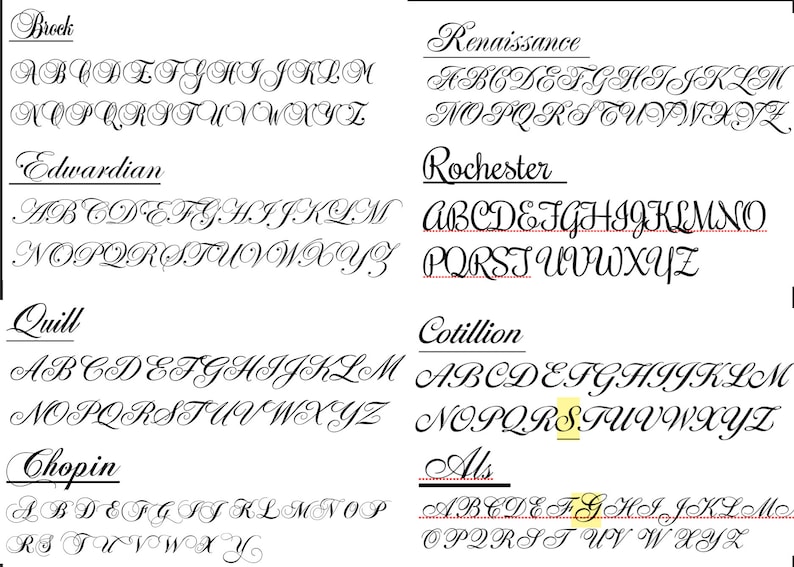 Brock
A B C D E F G H I J K L M
N O P Q R S T U V W X Y Z
Edwardian
A B C D E F G H I J K L M
N O P Q R S T U V W X Y Z
Quill
A B C D E F G H I J K L M
N O P Q R S T U V W X Y Z
Chopin
A B D E F G I J K L M N O P
R S T U V W X Y
Renaissance
A B C D E F G H I J K L M
N O P Q R S T U V W X Y Z
Rochester
A B C D E F G H I J K L M N O
P Q R S T U V W X Y Z
Cotillion
A B C D E F G H I J K L M
N O P Q R S T U V W X Y Z
Als
A B C D E F G H I J K L M N
O P Q R S T U V W X Y Z